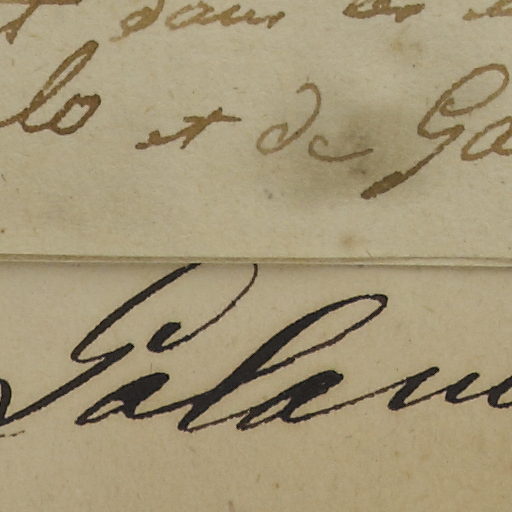 dans les
lo et de Ga
Galan